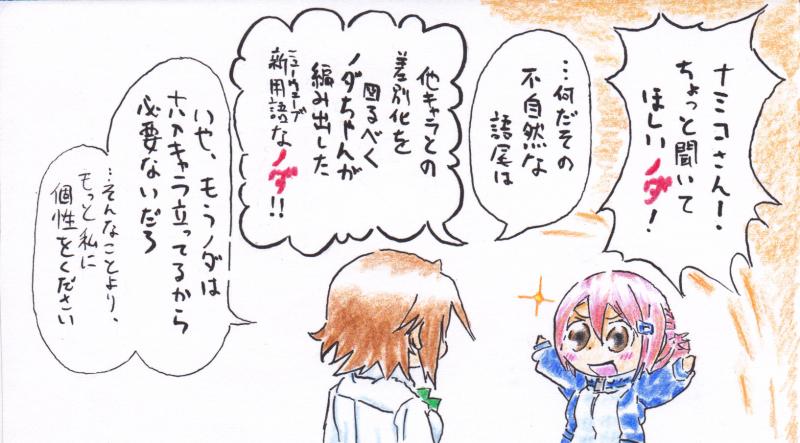 ナミコさん!
ちょっと聞いて
ほしいノダ!
…何だその
不自然な
語尾は
他キャラとの
差別化を
図るべく
ノダちゃんが
編み出した
ニューウェーブ
新用語なノダ!!
いや、もうノダは
十分キャラ立ってるから
必要ないだろ
…そんなことより、
もっと私に
個性をください